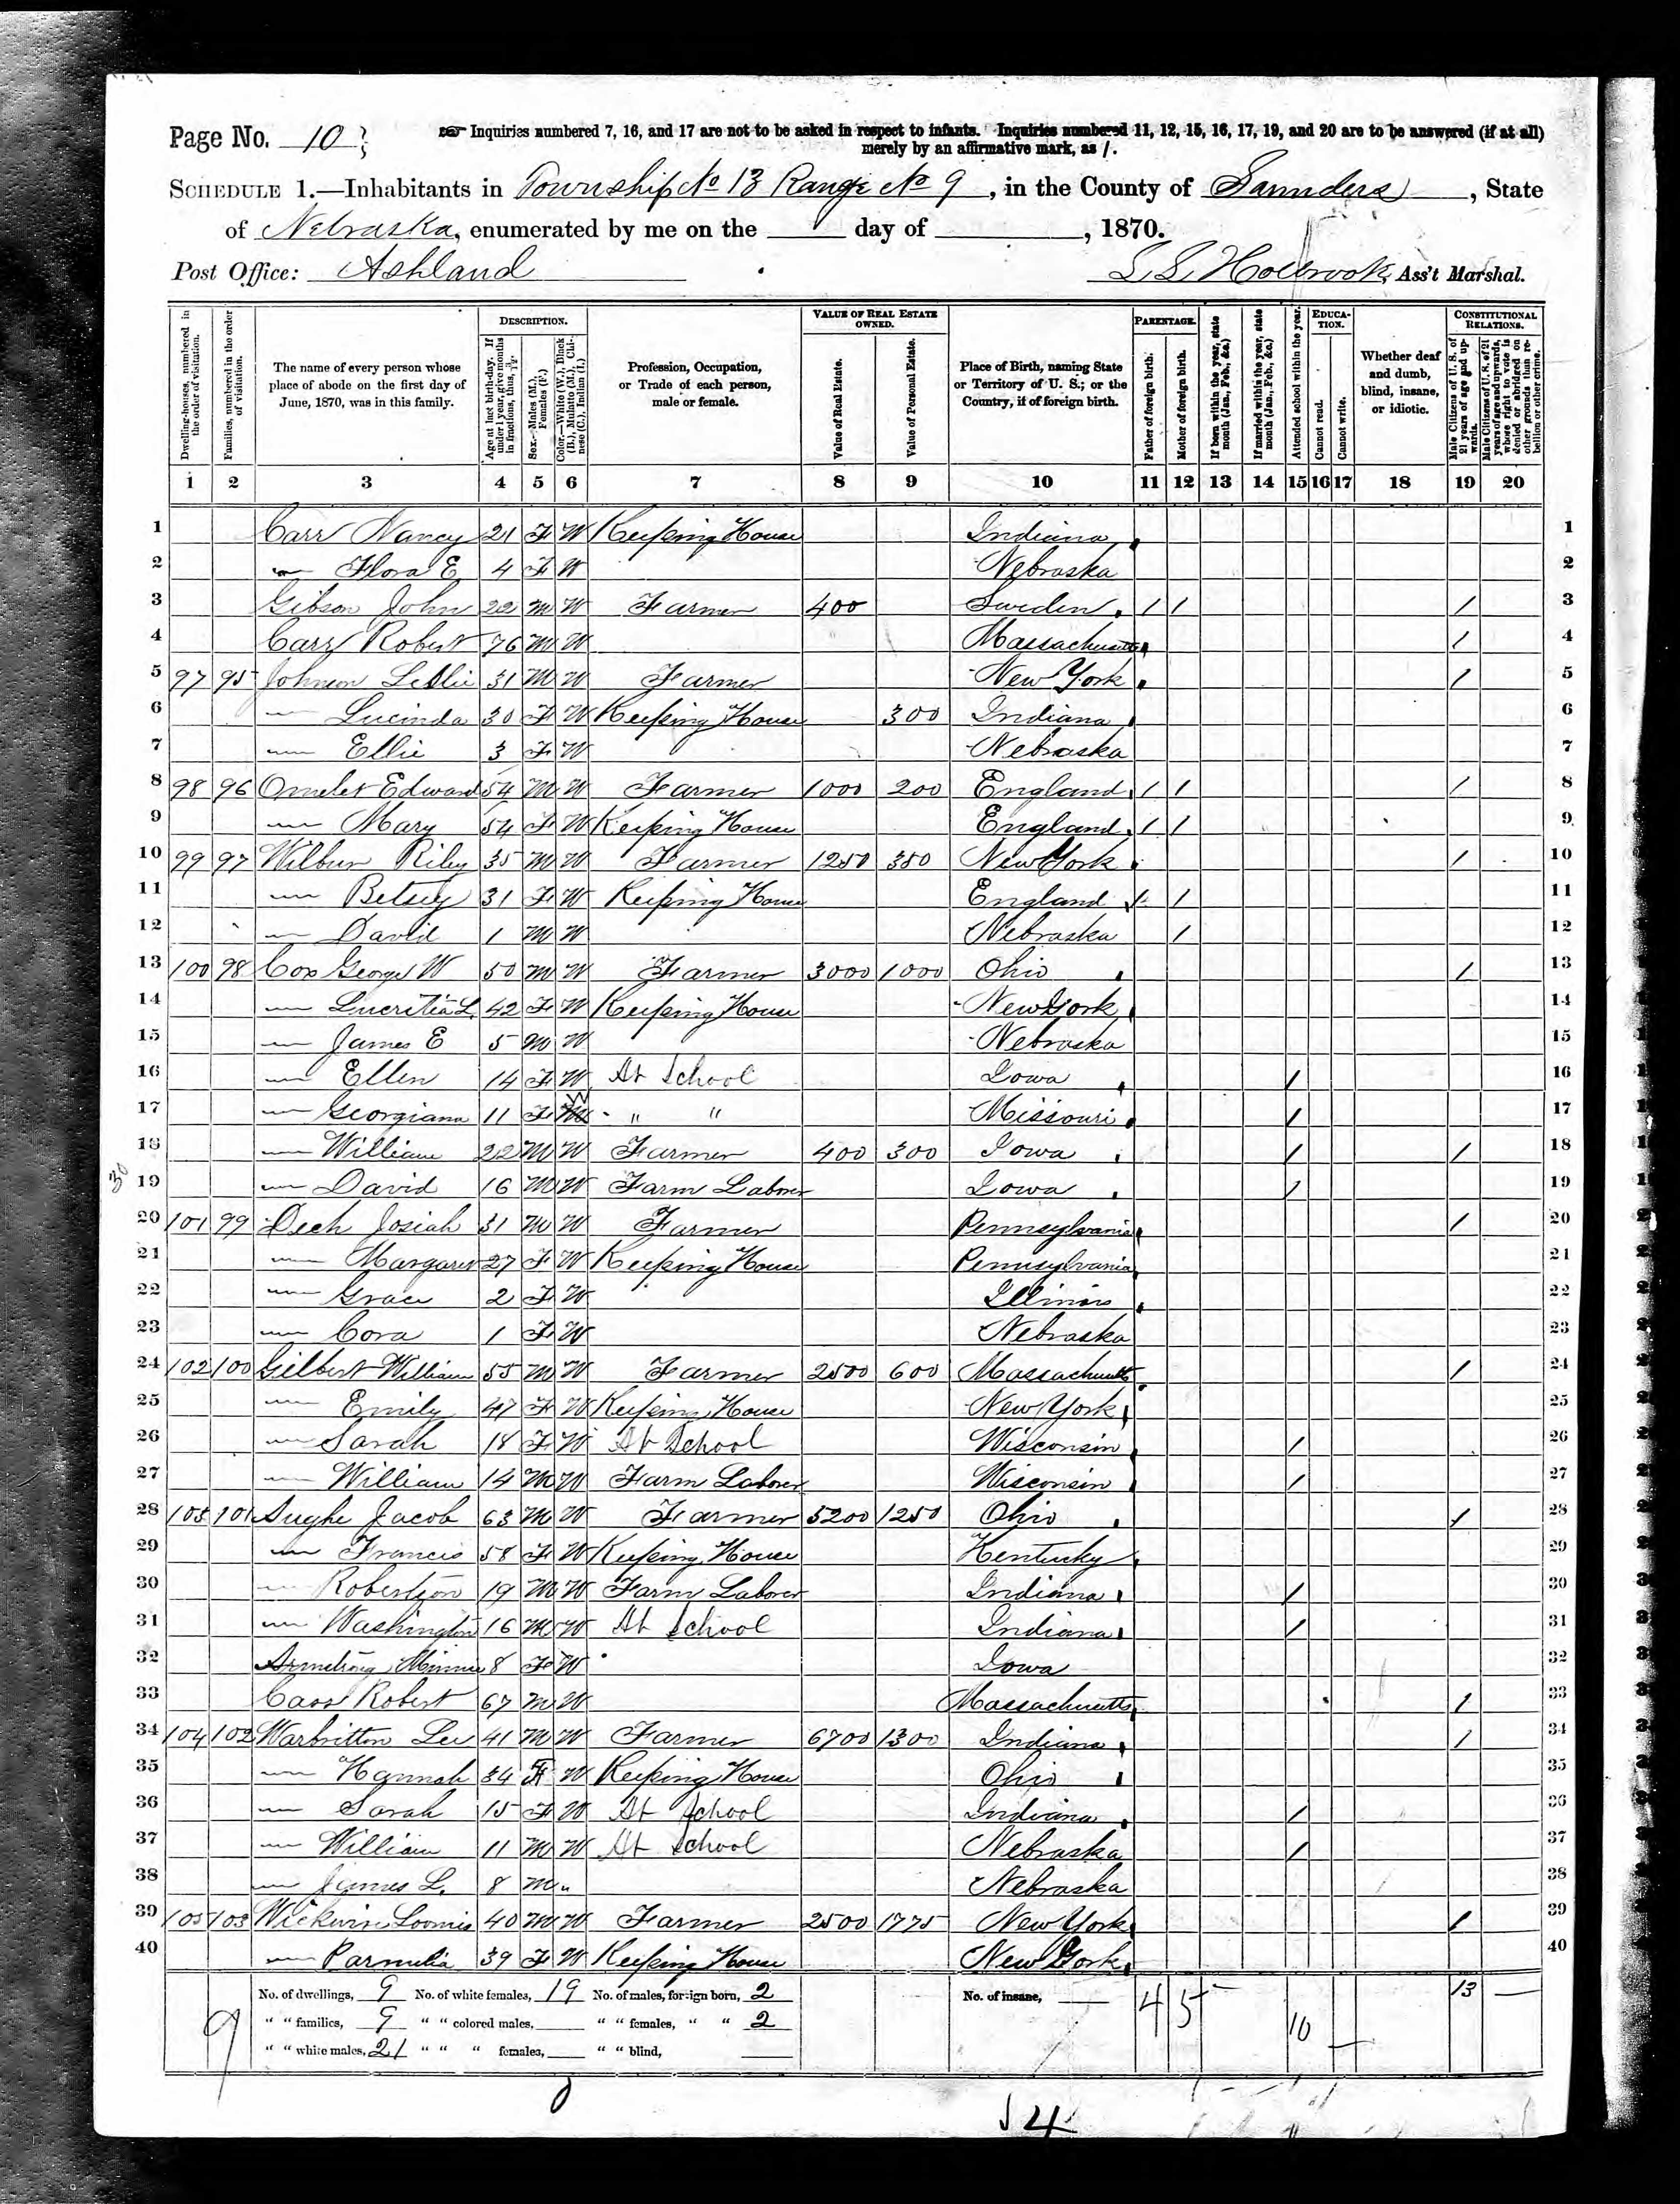 Page No. 10 ☞ Inquiries numbered 7, 16, and 17 are not to be asked in respect to infants. Inquiries numbered 11, 12, 15, 16, 17, 19, and 20 are to be answered (if at all)
merely by an affirmative mark, as /.
SCHEDULE 1.—Inhabitants in Township No 13 Range No 9, in the County of Saunders, State
of Nebraska, enumerated by me on the ___ day of ___, 1870.
Post Office: Ashland
Holbrook, Ass't Marshal.
Dwelling-houses, numbered in the order of visitation.
Families, numbered in the order of visitation.
The name of every person whose place of abode on the first day of June, 1870, was in this family.
DESCRIPTION.
Age at last birth-day. If under 1 year, give months in fractions, thus, 3/12.
Sex.—Males (M.), Females (F.)
Color.—White (W.), Black (B.), Mulatto (M.), Chinese (C.), Indian (I.)
Profession, Occupation, or Trade of each person, male or female.
VALUE OF REAL ESTATE OWNED.
Value of Real Estate.
Value of Personal Estate.
Place of Birth, naming State or Territory of U. S.; or the Country, if of foreign birth.
PARENTAGE.
Father of foreign birth.
Mother of foreign birth.
If born within the year, state month (Jan., Feb., &c.)
If married within the year, state month (Jan., Feb., &c.)
Attended school within the year.
EDUCATION.
Cannot read.
Cannot write.
Whether deaf and dumb, blind, insane, or idiotic.
CONSTITUTIONAL RELATIONS.
Male Citizens of U. S. of 21 years of age and upwards.
Male Citizens of U. S. of 21 years of age and upwards, whose right to vote is denied or abridged on other grounds than rebellion or other crime.
1 2 3 4 5 6 7 8 9 10 11 12 13 14 15 16 17 18 19 20
1 Carr Nancy 21 F W Keeping House Indiana 1
2 — Flora E 4 F W Nebraska 2
3 Gibson John 22 M W Farmer 400 Sweden / / / 3
4 Carr Robert 76 M W Massachusetts / 4
5 97 95 Johnson Leslie 31 M W Farmer New York / 5
6 — Lucinda 30 F W Keeping House 300 Indiana 6
7 — Ellie 3 F W Nebraska 7
8 98 96 Omelet Edward 54 M W Farmer 1000 200 England / / / 8
9 — Mary 54 F W Keeping House England / / 9
10 99 97 Wilbur Riley 35 M W Farmer 1250 350 New York / 10
11 — Betsey 31 F W Keeping House England / / 11
12 — David 1 M W Nebraska / 12
13 100 98 Cox George W 50 M W Farmer 3000 1000 Ohio / 13
14 — Lucritia L. 42 F W Keeping House New York 14
15 — James E 5 M W Nebraska 15
16 — Ellen 14 F W At School Iowa / 16
17 — Georgiana 11 F W " " Missouri / 17
18 — William 22 M W Farmer 400 300 Iowa / / 18
19 — David 16 M W Farm Laborer Iowa / 19
20 101 99 Dech Josiah 31 M W Farmer Pennsylvania / 20
21 — Margaret 27 F W Keeping House Pennsylvania 21
22 — Grace 2 F W Illinois 22
23 — Cora 1 F W Nebraska 23
24 102 100 Gilbert William 55 M W Farmer 2500 600 Massachusetts / 24
25 — Emily 47 F W Keeping House New York 25
26 — Sarah 18 F W At School Wisconsin / 26
27 — William 14 M W Farm Laborer Wisconsin / 27
28 103 101 Jacob 63 M W Farmer 5200 1250 Ohio / 28
29 — Francis 58 F W Keeping House Kentucky 29
30 — Robertson 19 M W Farm Laborer Indiana / 30
31 — Washington 16 M W At School Indiana / 31
32 Armstrong Minnie 8 F W Iowa 32
33 Cass Robert 67 M W Massachusetts / 33
34 104 102 Warbritton Lee 41 M W Farmer 6700 1300 Indiana / 34
35 — Hannah 34 F W Keeping House Ohio 35
36 — Sarah 15 F W At School Indiana / 36
37 — William 11 M W At School Nebraska / 37
38 — James L. 8 M " Nebraska 38
39 105 103 Wickwire Loomis 40 M W Farmer 2500 1775 New York / 39
40 — Parmelia 39 F W Keeping House New York 40
No. of dwellings, 9 No. of white females, 19 No. of males, foreign born, 2 No. of insane, 4 5 10 13
" " families, 9 " " colored males, " " females, " " 2
" " white males, 21 " " " females, " " blind,